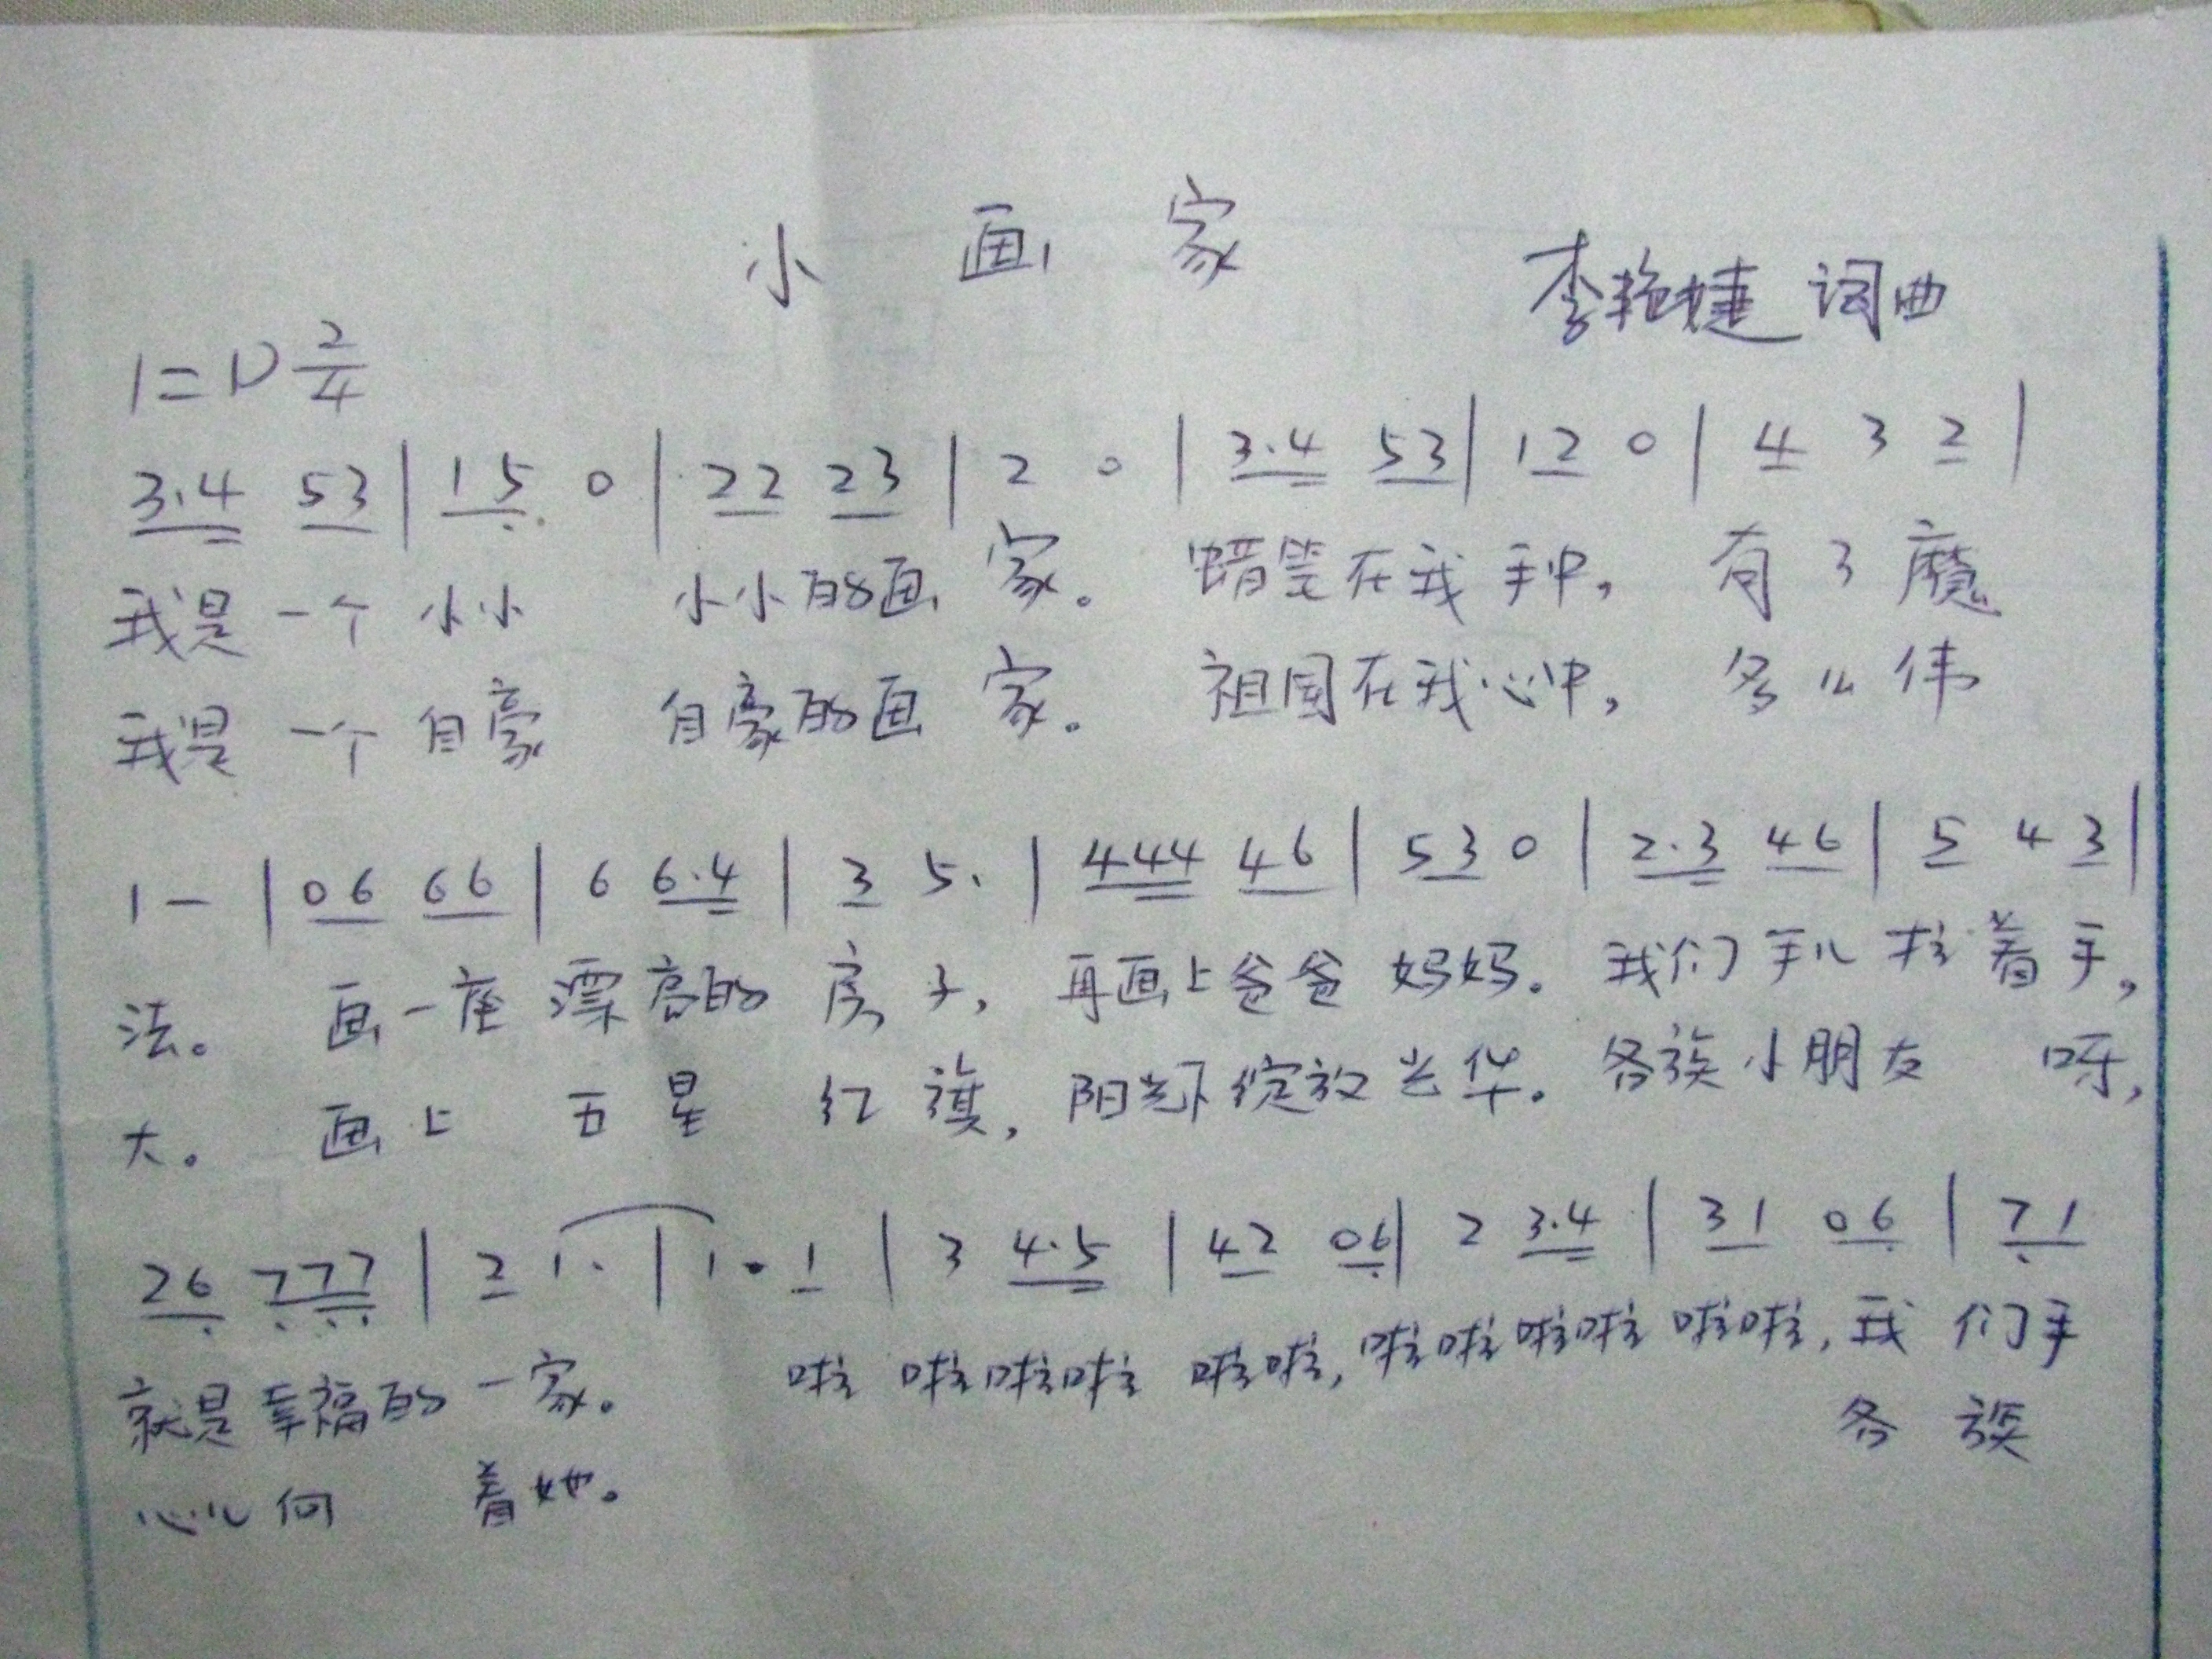 小 画 家
李艳婕 词曲
1=D 2/4
3.4 53 | 15 0 | 22 23 | 2 0 | 3.4 53 | 12 0 | 4 3 2 |
我是一个小小 小小的画家。 蜡笔在我手中, 有了魔
我是一个自豪 自豪的画家。 祖国在我心中, 多么伟
1 — | 06 66 | 6 6.4 | 3 5. | 444 46 | 53 0 | 2.3 46 | 5 4 3 |
法。 画一座漂亮的房子, 再画上爸爸妈妈。 我们手儿拉着手,
大。 画上 五星 红旗, 阳光下绽放光华。 各族小朋友 呀,
26 777 | 2 1. | 1. 1 | 3 4.5 | 42 06 | 2 3.4 | 31 06 | 71
就是幸福的一家。 啦 啦啦啦 啦啦, 啦啦啦啦 啦啦, 我 们手
各 族
心儿向 着她。